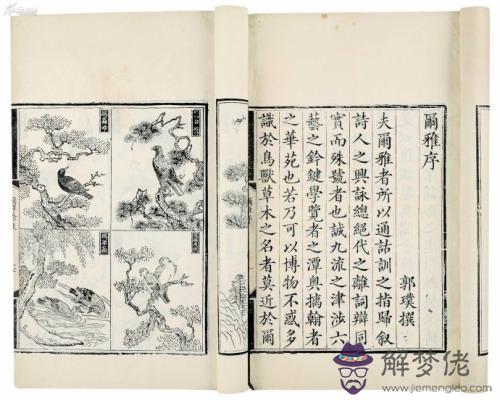 爾雅序
郭璞撰
夫爾雅者所以通詁訓之指歸叙
詩人之興詠總絕代之離詞辯同
實而殊號者也誠九流之津涉六
藝之鈐鍵學覽者之潭奧摛翰者
之華苑也若乃可以博物不惑多
識於鳥獸草木之名者莫近於爾
解梦佬
www.jiemenglao.com